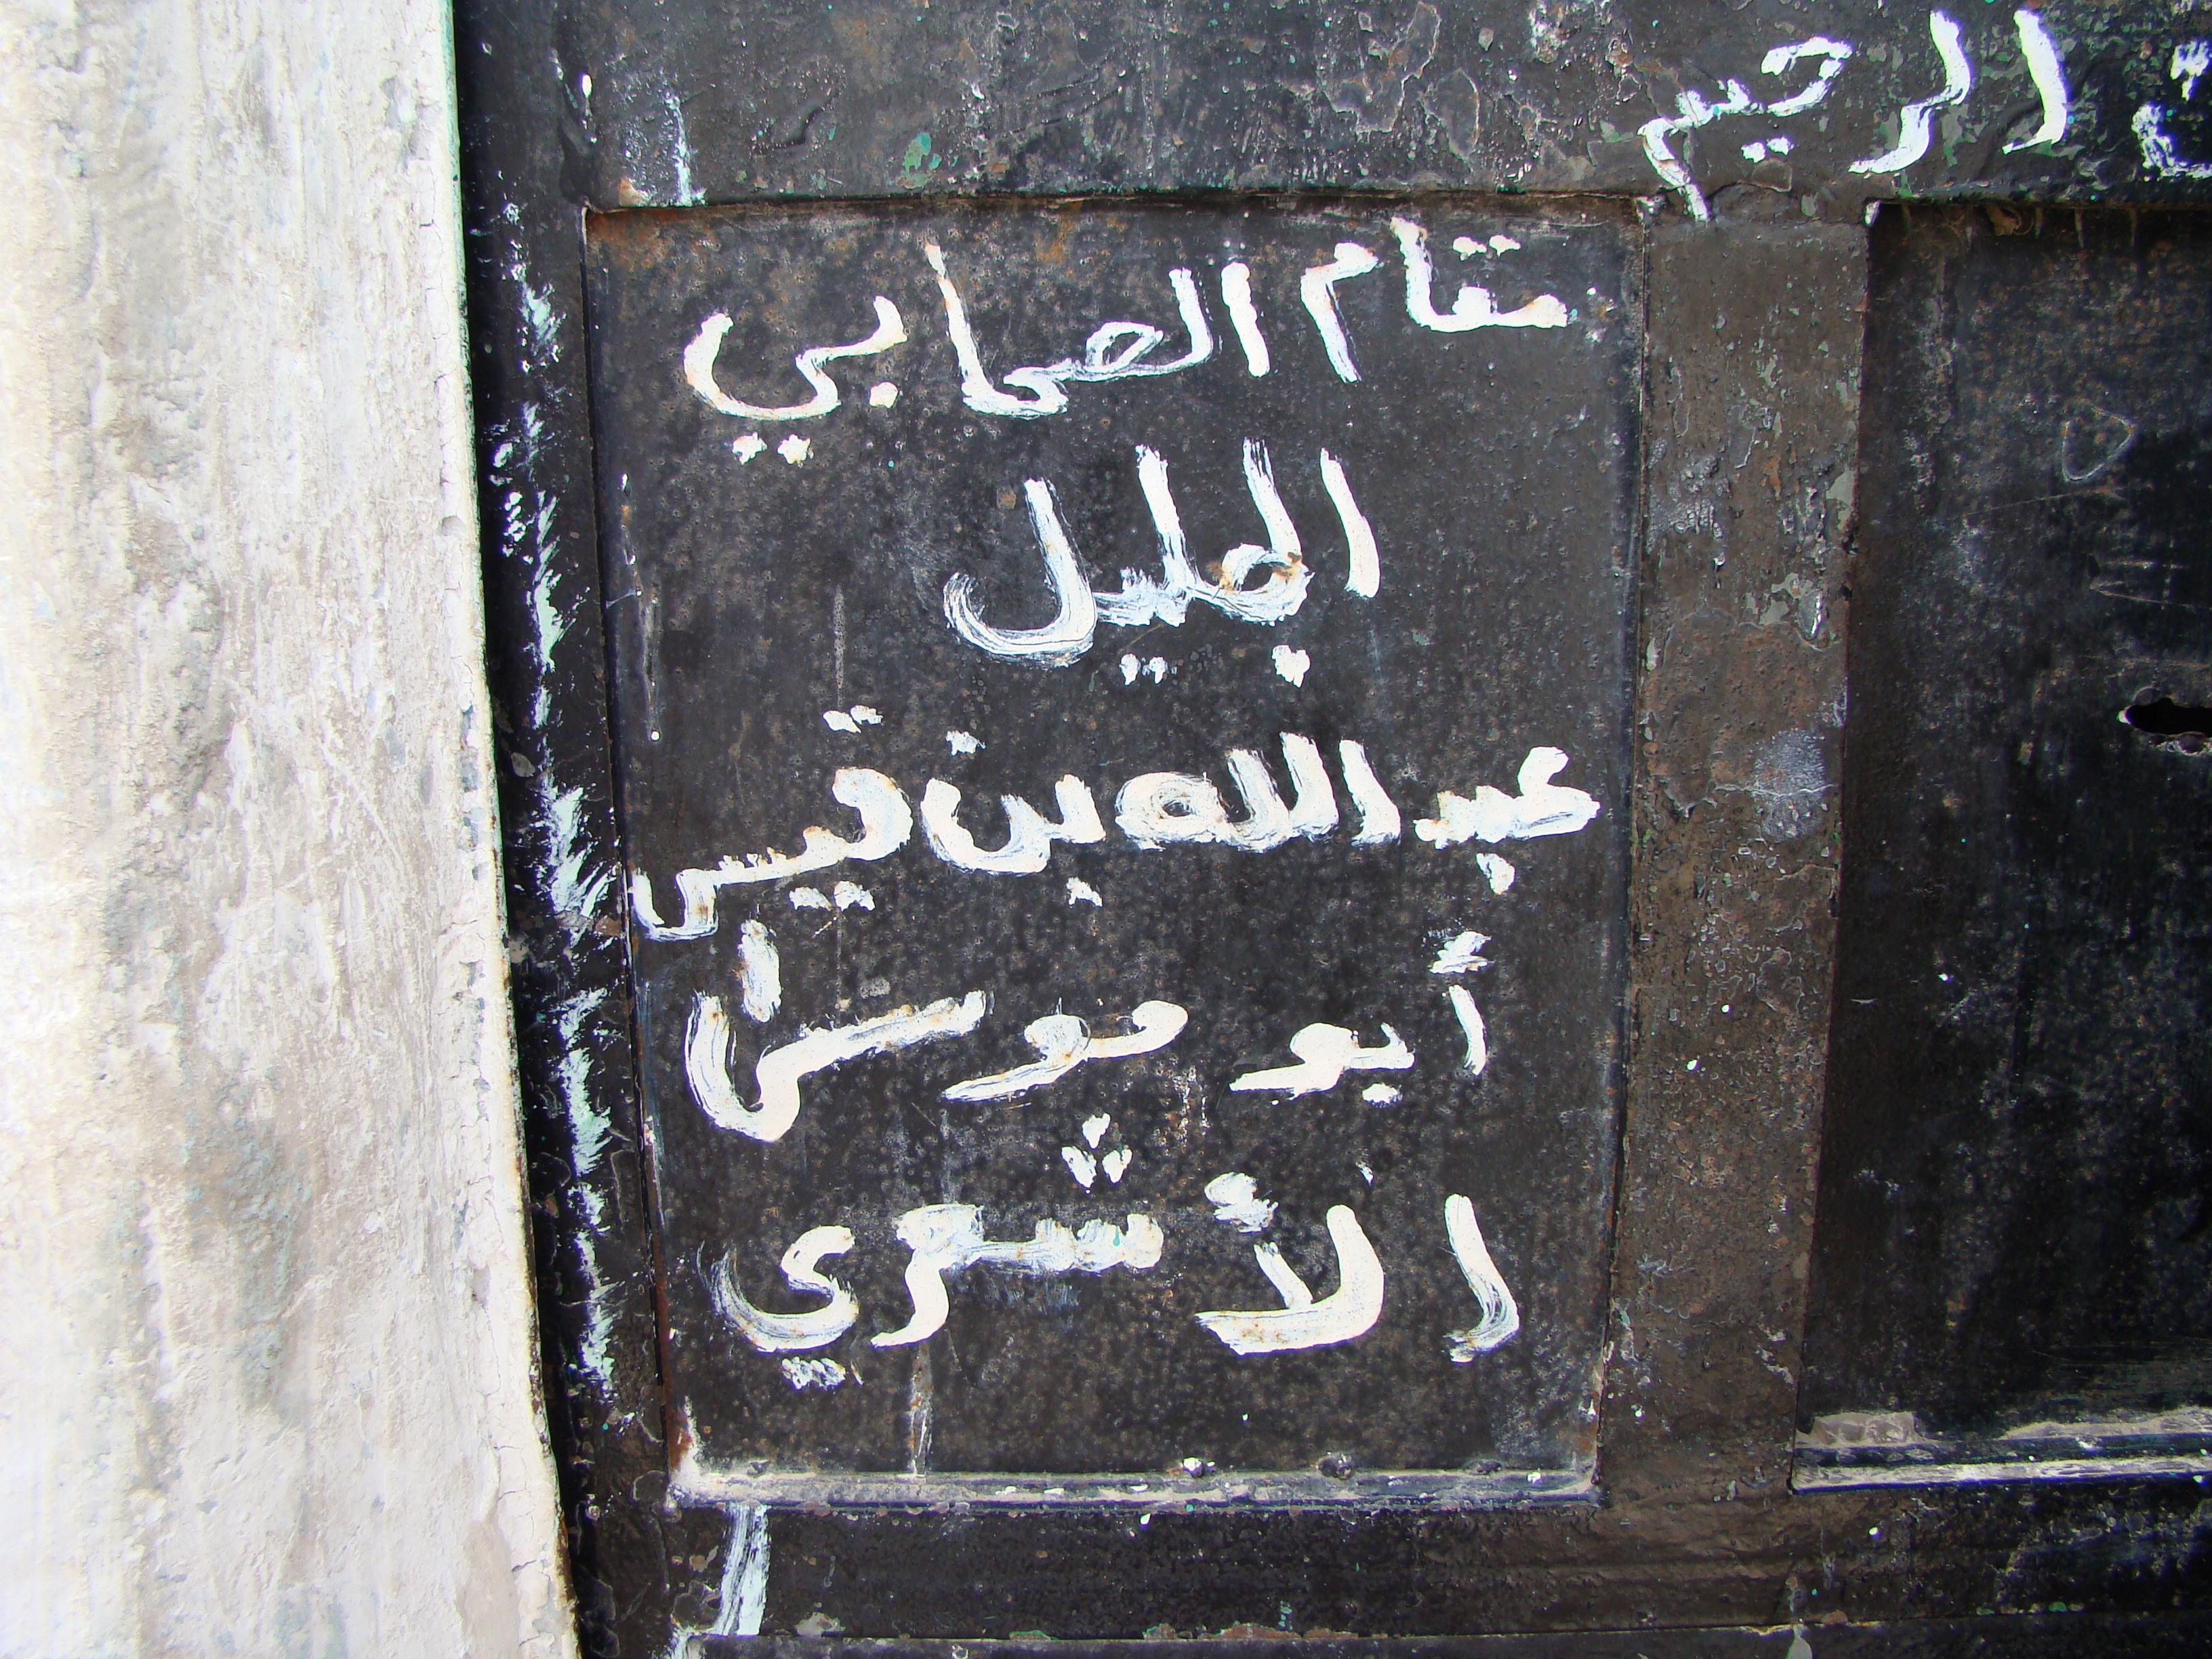 الرحيم
مقام الصحابي
الجليل
عبد الله بن قيس
أبو موسى
الأشعري